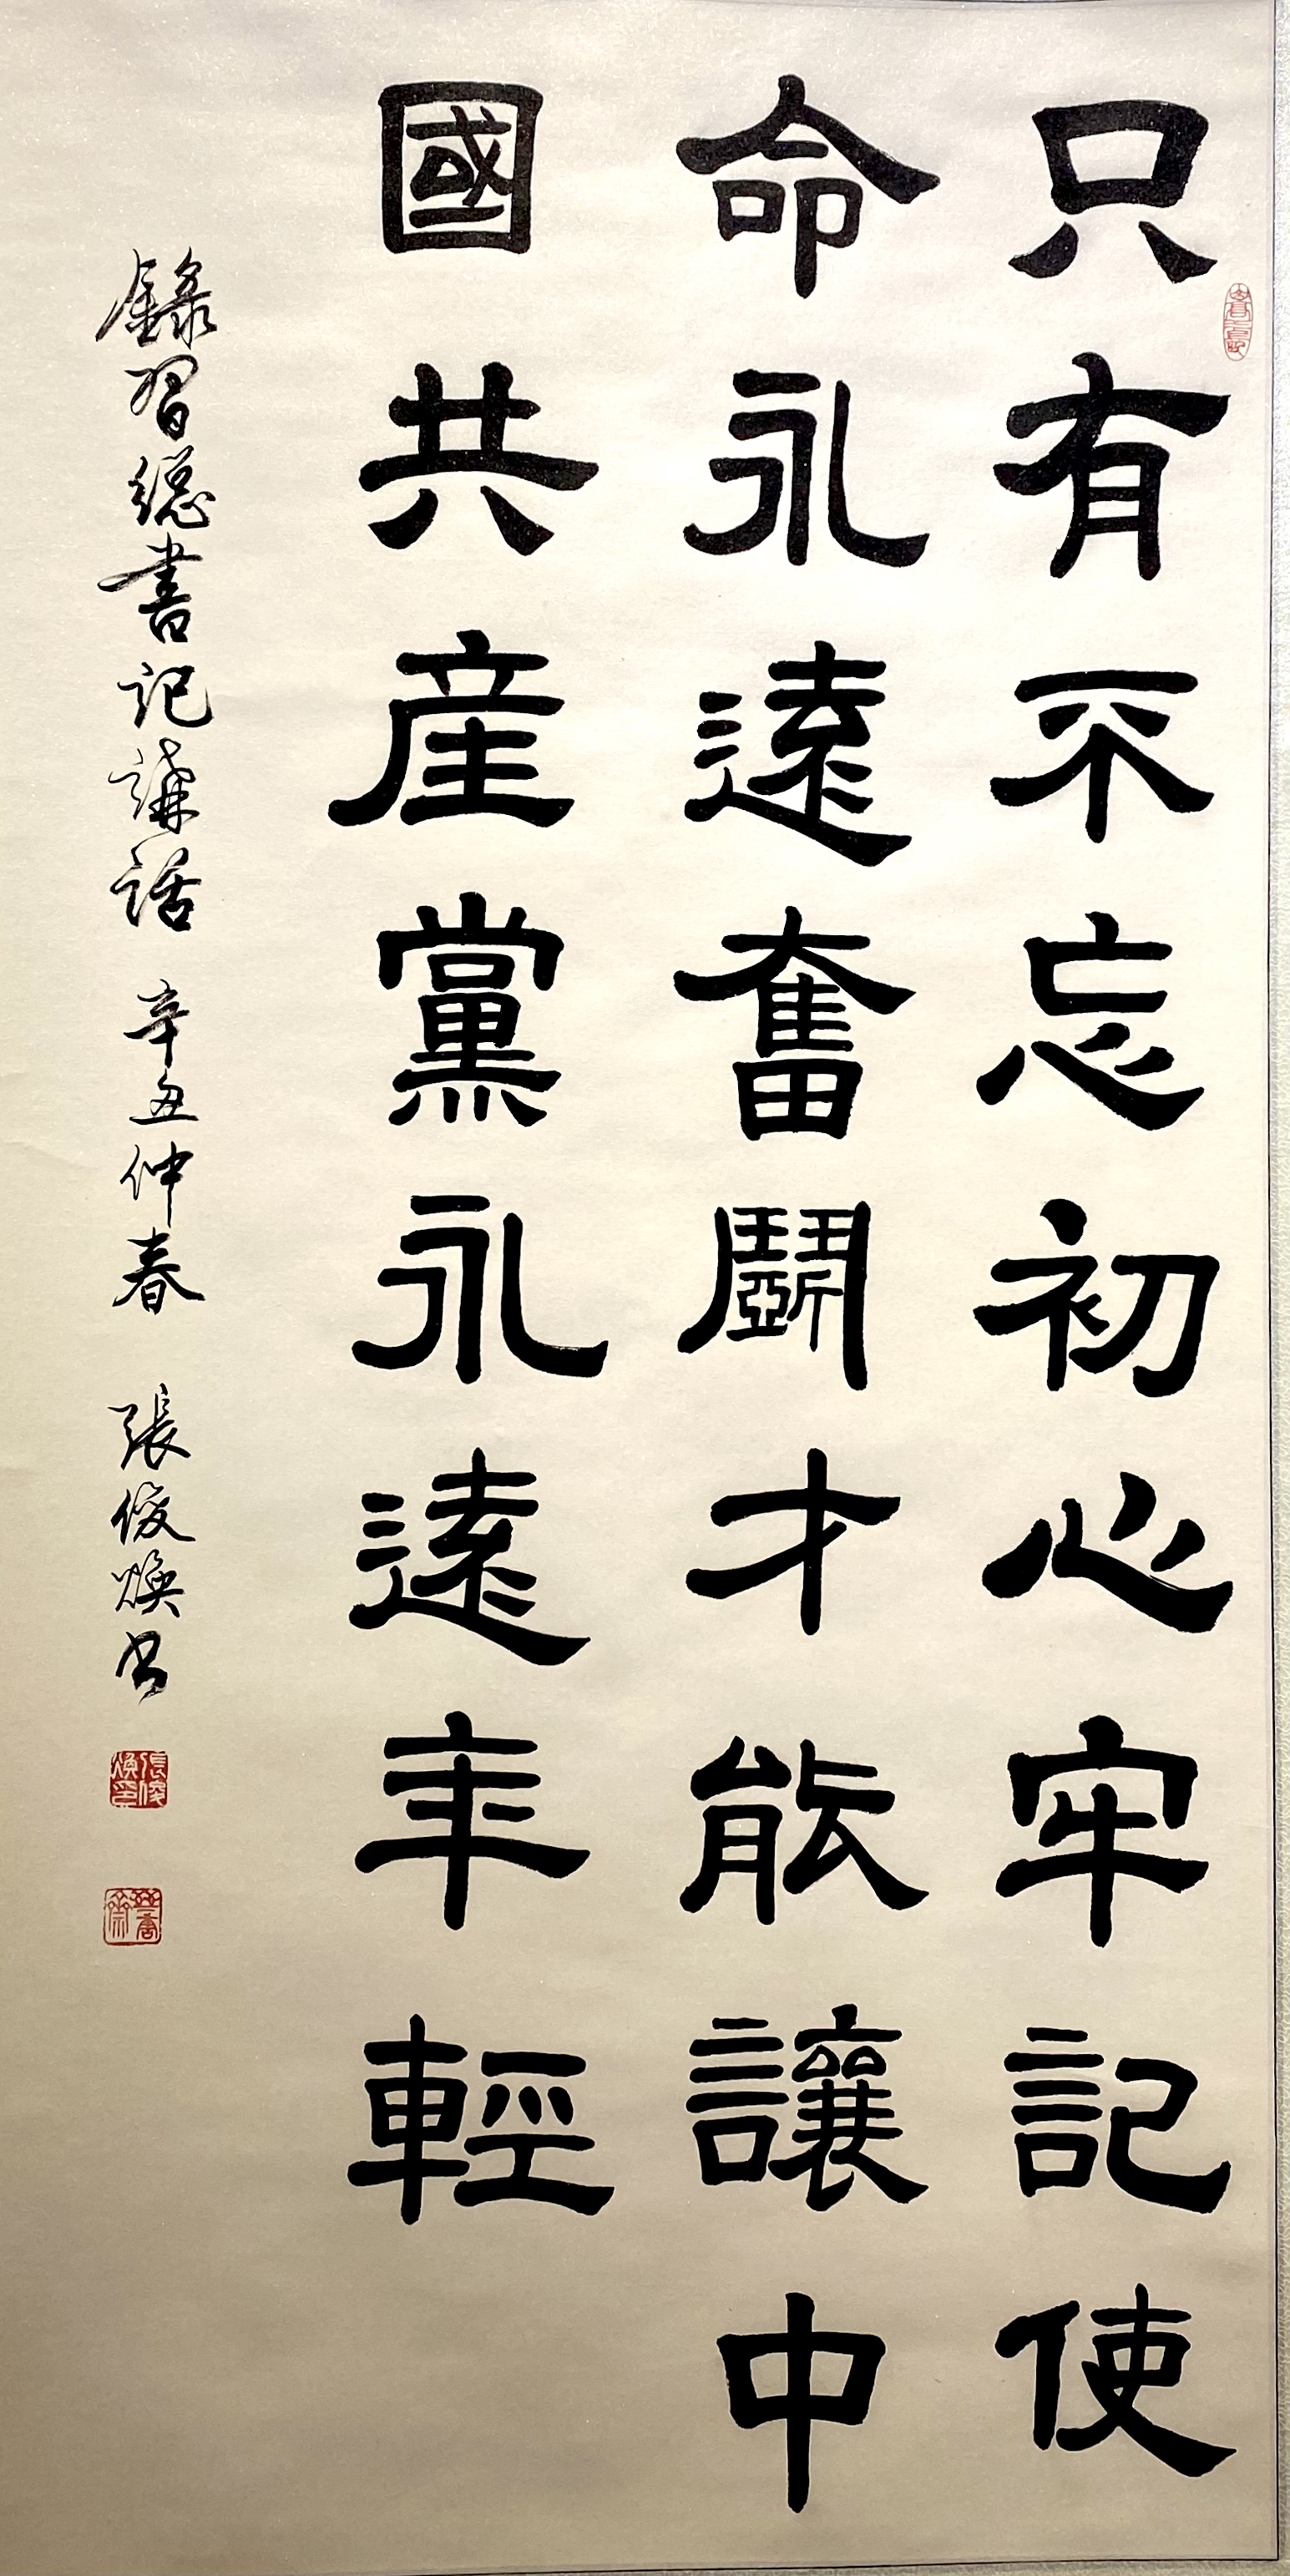 只有不忘初心牢記使
命永遠奮鬬才能讓中
國共產黨永遠年輕
錄習總書記講話 辛丑仲春 張俊煥書
張俊煥印